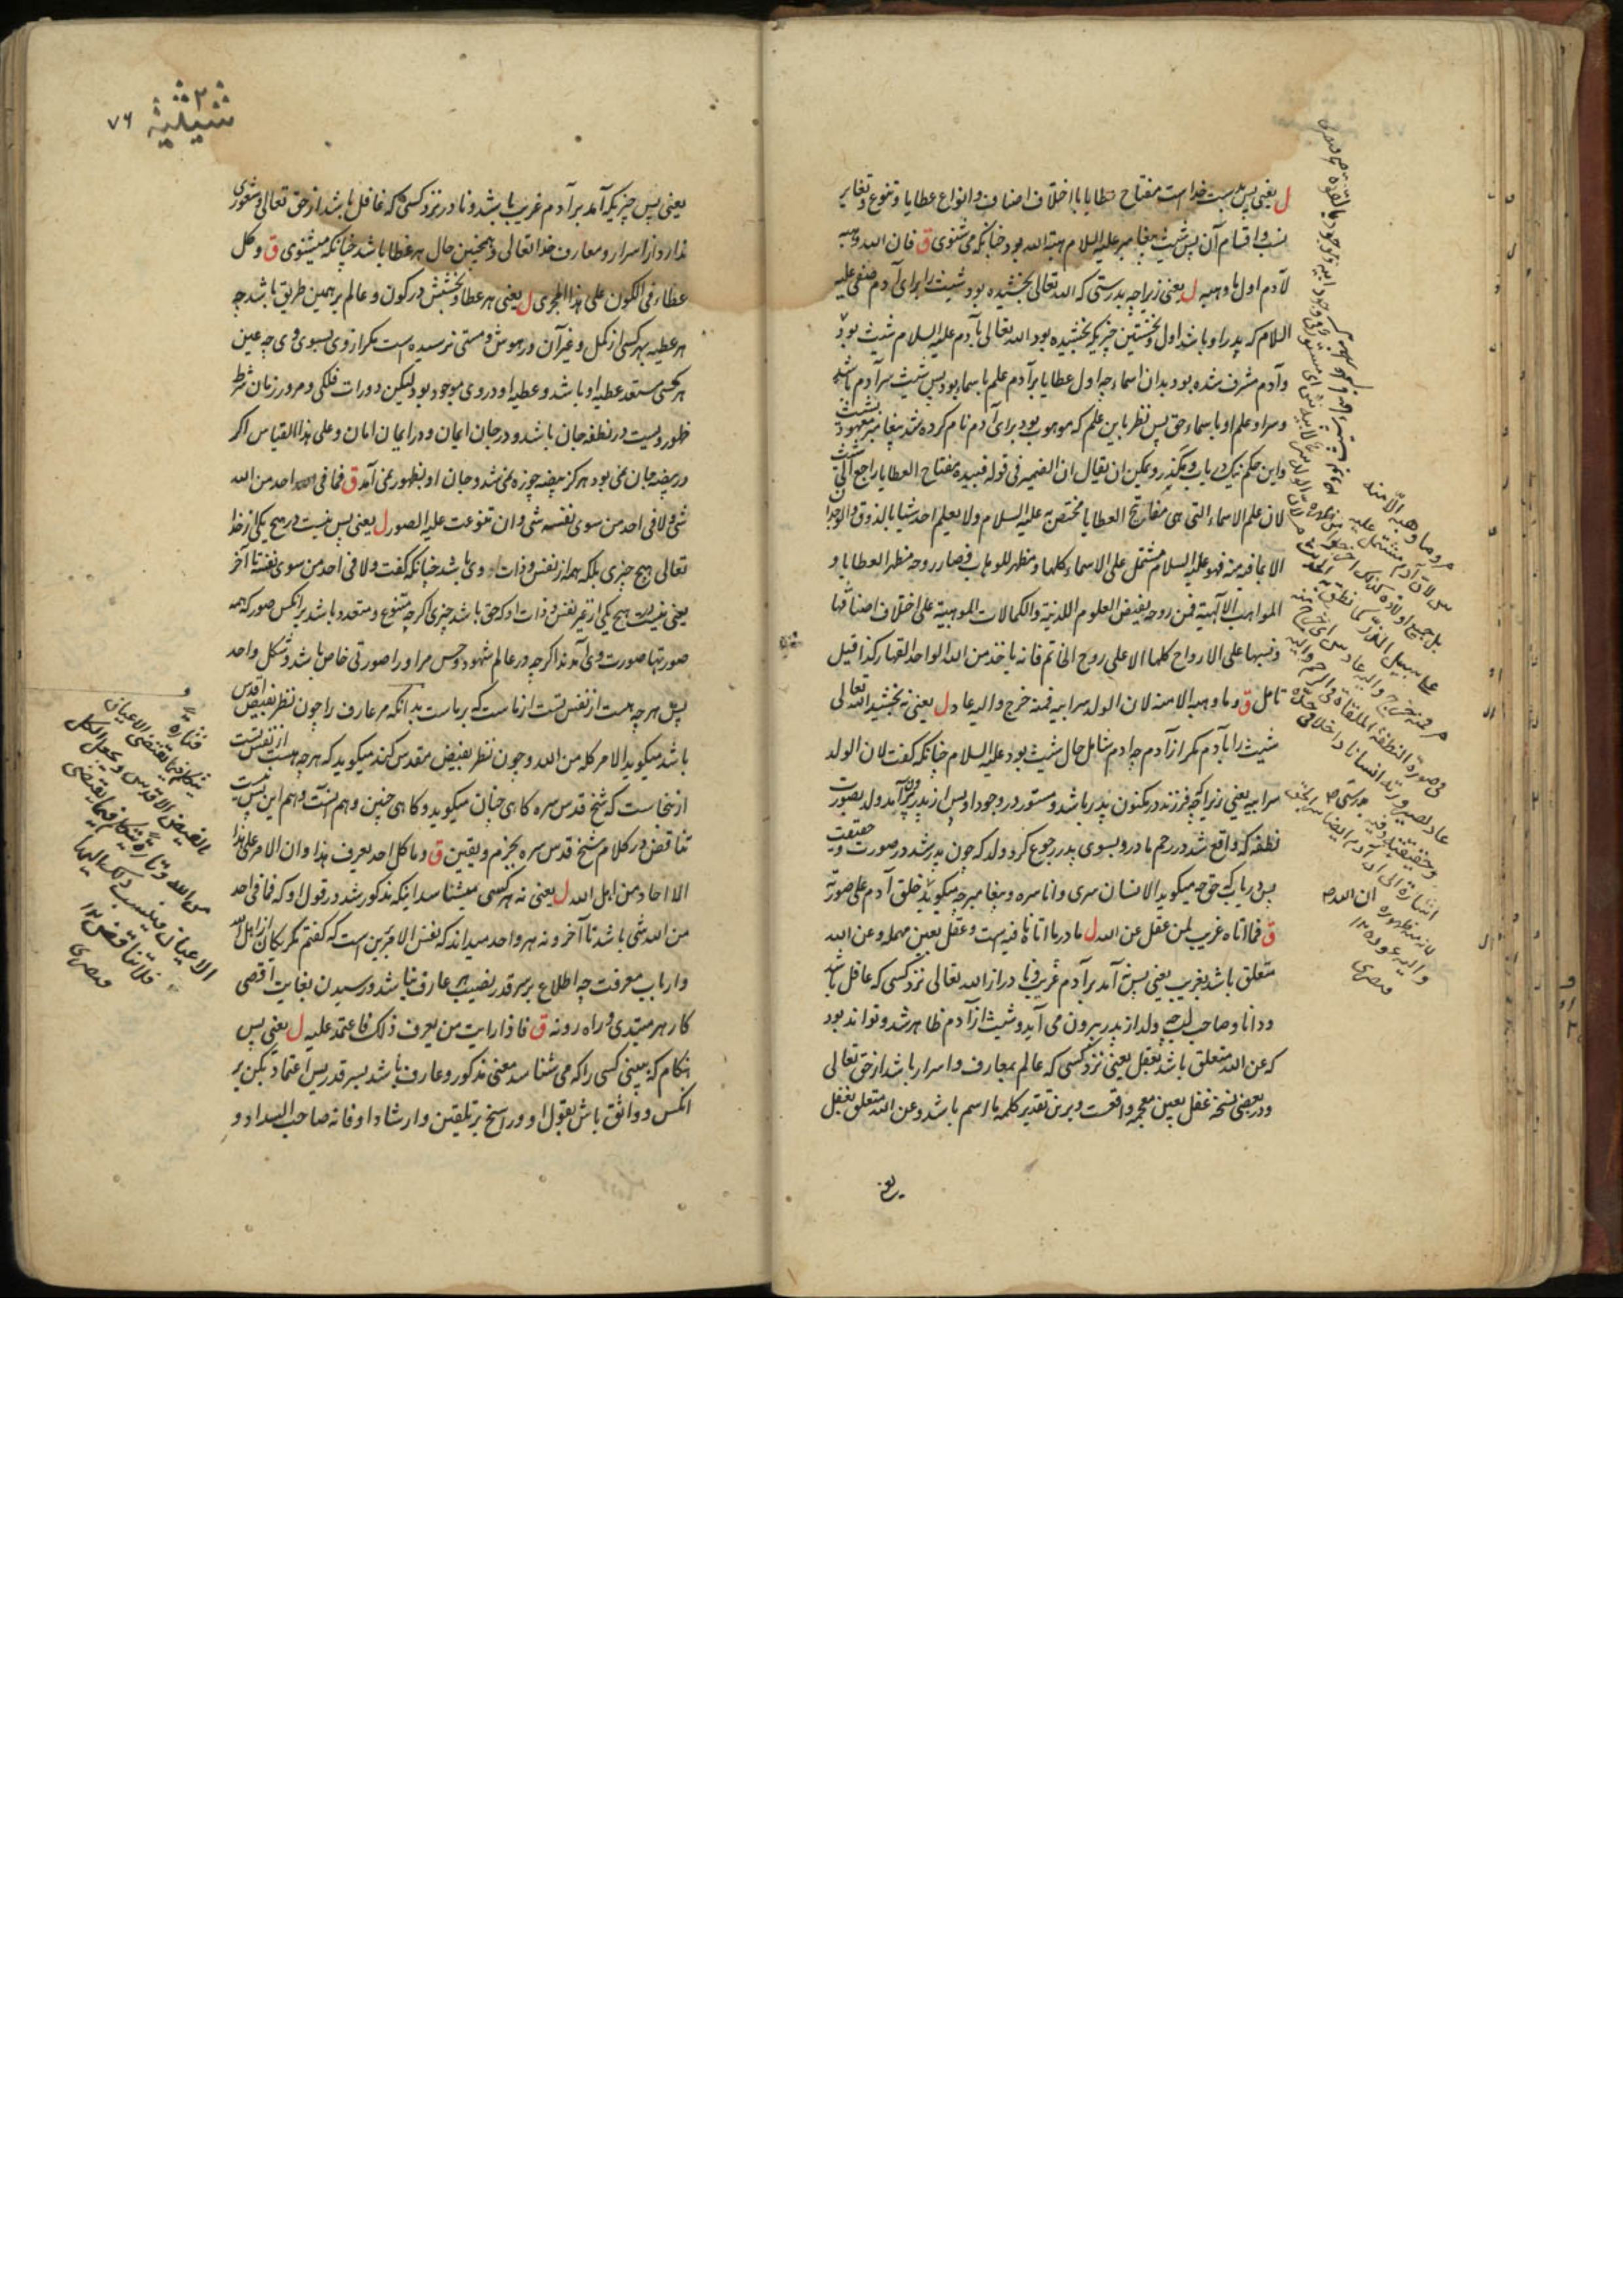 ل یعنی پس بدست خداست مفتاح عطایا با اختلاف اصناف و انواع عطایا و تنوع و تغایر
نسب و اقسام آن پس شیث پیغامبر علیه السلام هبة الله بود چنانکه می شنوی ق فان الله وهبه
لآدم اول ما وهبه ل یعنی زیراچه بدرستی که الله تعالی بخشیده بود شیث را برای آدم صفی علیه
السلام که پدر او باشد اول و نخستین چیزیکه بخشیده بود الله تعالی بآدم علیه السلام شیث بود
و آدم مشرف شده بود بدان اسماء چه اول عطایا بر آدم علم باسماء بود پس شیث سر آدم باشد
و سر او علم او باسماء حق پس نظر باین علم که موهوب بود برای آدم نام کرده شد پیغامبر معهود بشیث
و این حکم نیک دریاب و بگذر و یمکن ان یقال ان الضمیر فی قوله فبیده مفتاح العطایا راجع الی شیث
لان علم الاسماء التی هی مفاتیح العطایا مختص به علیه السلام ولا یعلم احد شیئا بالذوق والوجدان
الا بما فیه منه فهو علیه السلام مشتمل علی الاسماء کلها و مظهر للوهاب فصار روحه مظهر العطایا و
المواهب الالهیة فمن روحه یفیض العلوم اللدنیة والکمالات الموهبیة علی اختلاف اصنافها
ونسبها علی الارواح کلها الا علی روح الخاتم فانه یاخذ من الله الواحد القهار کذا قیل
تامل ق وما وهبه الا منه لان الولد سر ابیه فمنه خرج والیه عاد ل یعنی نه بخشید الله تعالی
شیث را بآدم مگر از آدم چه آدم شامل حال شیث بود علیه السلام چنانکه گفت لان الولد
سر ابیه یعنی زیراکه فرزند در مکنون پدر باشد و مستور در وجود او پس از پدر برآید ولد بصورت
نطفه که واقع شد در رحم مادر و بسوی پدر رجوع کرد ولد که چون پدر شد در صورت و حقیقت
پس دریاب که حق چه میگوید الانسان سری وانا سره و پیغامبر چه میگوید خلق آدم علی صورته
ق فما اتاه غریب لمن عقل عن الله ل ما در ما اتاه نافیه است و عقل بعین مهمله و عن الله
متعلق باشد بغریب یعنی پس نه آمد بر آدم غریب و نادر از الله تعالی نزد کسی که عاقل باشد
و دانا و صاحب لب چه ولد از پدر بیرون می آید و شیث از آدم ظاهر شد و تواند بود
که عن الله متعلق باشد بعقل یعنی نزد کسی که عالم بمعارف و اسرار باشد از حق تعالی
و در بعضی نسخه غفل بغین معجمه واقعست و برین تقدیر کلمه ما اسم باشد و عن الله متعلق بغفل
یعنی
وما وهبه الا منه
لان آدم مشتمل علیه
بل جمیع اولاده
علی سبیل الذر کما نطق به
فمنه خرج والیه عاد
فی صورة النطفة الملقاة فی الرحم والیه
عاد لصیرورته انسانا داخلا فی حده
وحقیقته وفیه
اشارة الی ان آدم ایضا سر الحق
لانه منه ظهوره
والیه عوده ۱۲
قیصری
۲
شیثیة
۷۶
یعنی پس چیزیکه آمد بر آدم غریب باشد و نادر نزد کسی که غافل باشد از حق تعالی و شعوری
ندارد از اسرار و معارف خدا تعالی و همچنین حال هر عطا باشد چنانکه میشنوی ق وکل
عطاء فی الکون علی هذا المجری ل یعنی هر عطا و بخشش در کون و عالم بر همین طریق باشد چه
هر عطیه بهر کسی از کمل و غیر آن در هوش و مستی نرسیده است مگر از وی بسوی وی چه عین
هر کسی مستعد عطیه او باشد و عطیه او در وی موجود بود لیکن دورات فلکی و مرور زمان شرط
ظهور ویست در نطفه جان باشد و در جان ایمان و در ایمان امان و علی هذا القیاس اگر
در بیضه جان نمی بود هرگز بیضه چوزه نمی شد و جان او بظهور نمی آمد ق فما فی احد من الله
شی ولا فی احد من سوی نفسه شی وان تنوعت علیه الصور ل یعنی پس نیست در هیچ یکی از خدا
تعالی هیچ چیزی بلکه همه از نفس و ذات وی باشد چنانکه گفت ولا فی احد من سوی نفسه تا آخر
یعنی نیست در هیچ یکی از غیر نفس و ذات او که حق باشد چیزی اگرچه متنوع و متعدد باشد بر آنکس صور که همه
صورتها صورت وی آمدند اگرچه در عالم شهود و حس مر او را صورتی خاص باشد و شکل واحد
پس هرچه هست از نفس تست از ماست که بر ماست بدانکه مر عارف را چون نظر بفیض اقدس
باشد میگوید الامر کله من الله و چون نظر بفیض مقدس کند میگوید که هرچه هست از نفس تست
ازینجاست که شیخ قدس سره گاهی چنان میگوید و گاهی چنین و هم آنست و هم این پس نیست
تناقض در کلام شیخ قدس سره بجزم و یقین ق وما کل احد یعرف هذا وان الامر علی هذا
الا احاد من اهل الله ل یعنی نه هر کسی میشناسد اینکه مذکور شد در قول او که فما فی احد
من الله شی باشد تا آخر و نه هر واحد میداند که نفس الامر برین است که گفتم مگر یکان از اهل الله
و ارباب معرفت چه اطلاع بر سر قدر نصیب هر عارف نباشد و رسیدن بغایت اقصی
کار هر مبتدی و راه رو نه ق فاذا رایت من یعرف ذلک فاعتمد علیه ل یعنی پس
هنگام که بینی کسی را که می شناسد معنی مذکور و عارف باشد بسر قدر پس اعتماد بکن بر
آنکس و واثق باش بقول او و راسخ بر تلقین و ارشاد او فانه صاحب السداد و
فتارة
یتکلم فیما یقتضی الاعیان
بالفیض الاقدس ویجعل الکل
من الله وتارة یتکلم فیما یقتضی
الاعیان وینسب ذلک الیها
فلا تناقض ۱۲
قیصری